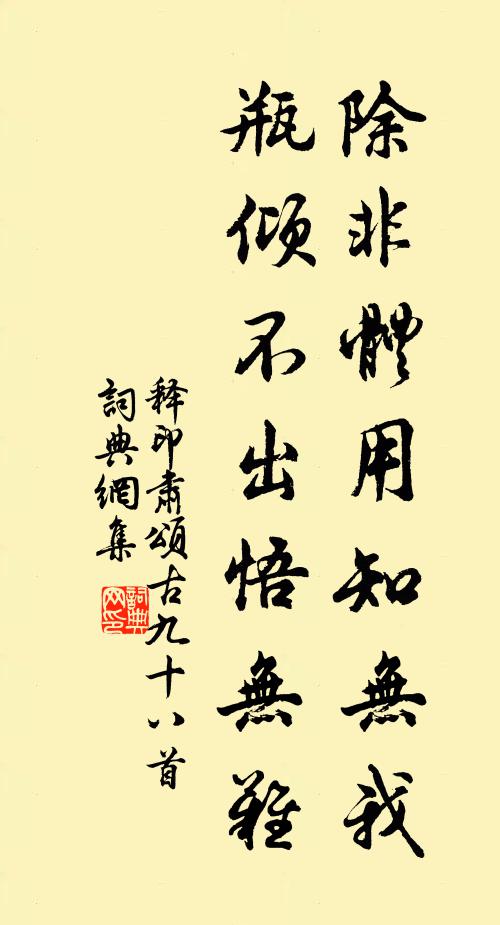 除非體用知無我
瓶傾不出悟無難
释印肅頌古九十八首
詞典網集
詞典
网印